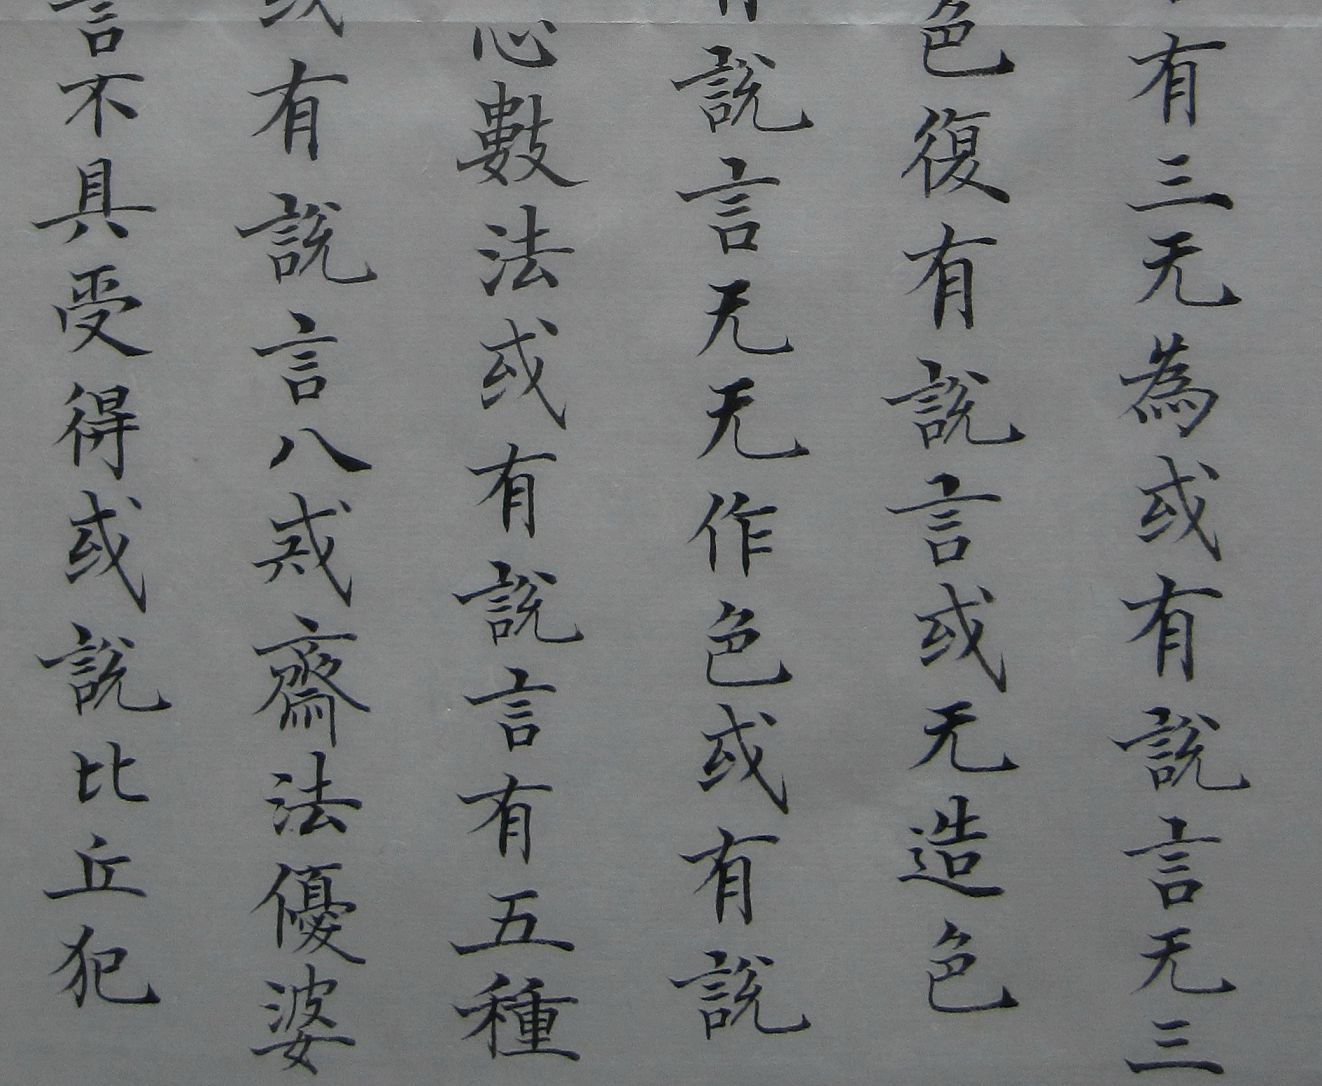 有三无為或有說言无三
色復有說言或无造色
有說言无无作色或有說
心數法或有說言有五種
或有說言八戒齋法優婆
言不具受得或說比丘犯